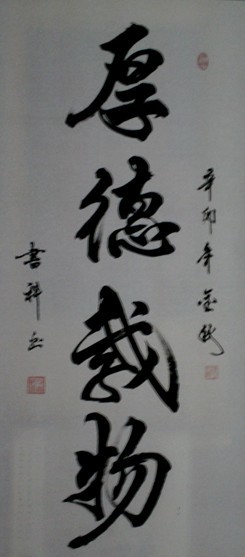 辛卯年金秋
厚德载物
書祥書